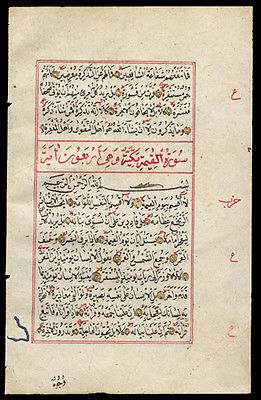 فما تنفعهم شفاعة الشافعين فما لهم عن التذكرة معرضين كأنهم
حمر مستنفرة فرت من قسورة بل يريد كل امرئ منهم أن يؤتى
صحفا منشرة كلا بل لا يخافون الآخرة كلا إنه تذكرة فمن شاء ذكره
وما يذكرون إلا أن يشاء الله هو أهل التقوى وأهل المغفرة
ع
سورة القيمة مكية وهي أربعون آية
بسم الله الرحمن الرحيم
لا أقسم بيوم القيمة ولا أقسم بالنفس اللوامة أيحسب الإنسان ألن
حزب
نجمع عظامه بلى قادرين على أن نسوي بنانه بل يريد الإنسان
ليفجر أمامه يسئل أيان يوم القيمة فإذا برق البصر وخسف
القمر وجمع الشمس والقمر يقول الإنسان يومئذ أين المفر
ع
كلا لا وزر إلى ربك يومئذ المستقر ينبؤا الإنسان يومئذ بما
قدم وأخر بل الإنسان على نفسه بصيرة ولو ألقى معاذيره لا تحرك
به لسانك لتعجل به إن علينا جمعه وقرآنه فإذا قرأناه فاتبع
قرآنه ثم إن علينا بيانه كلا بل تحبون العاجلة وتذرون
ع
وجوه